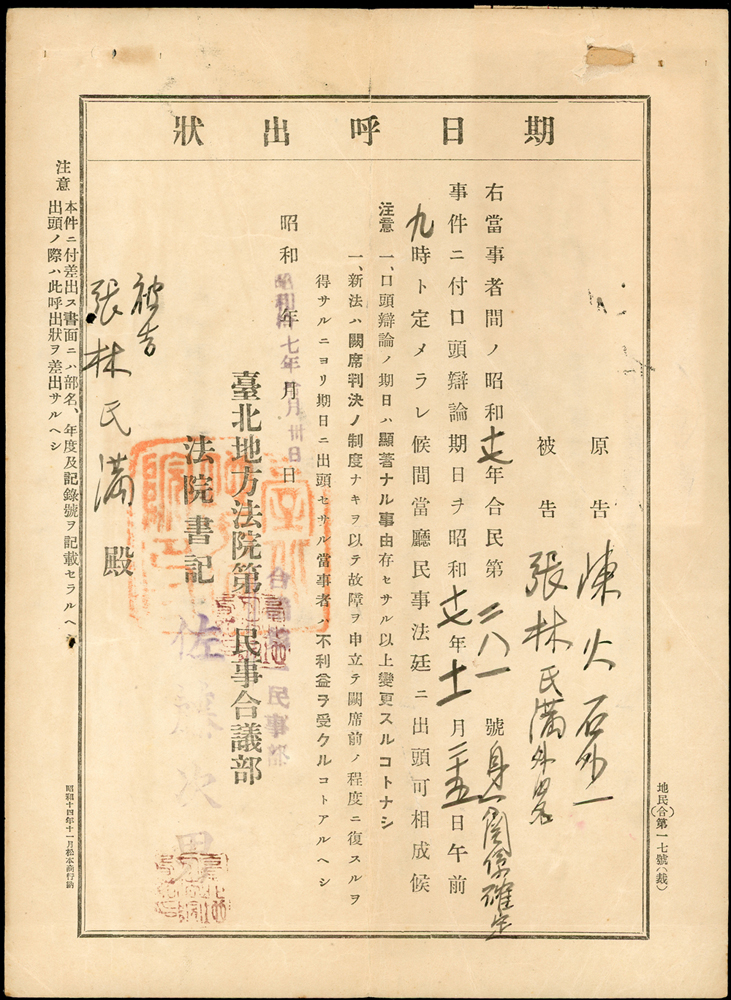 期日呼出狀
原告 陳火石外一
被告 張林氏滿外四名
右當事者間ノ昭和十七年合民第二八一號身分關係確定
事件ニ付口頭辯論期日ヲ昭和十七年十一月二十五日午前
九時ト定メラレ候間當廳民事法廷ニ出頭可相成候
注意 一、口頭辯論ノ期日ハ顯著ナル事由存セサル以上變更スルコトナシ
一、新法ハ闕席判決ノ制度ナキヲ以テ故障ヲ申立テ闕席前ノ程度ニ復スルヲ
得サルニヨリ期日ニ出頭セサル當事者ハ不利益ヲ受クルコトアルヘシ
昭和 年 月 日
昭和拾七年 月卅日
臺北地方法院第 民事合議部
民事部
法院書記 佐藤次男
被告
張林氏滿殿
注意 本件ニ付差出ス書面ニハ部名、年度及記錄號ヲ記載セラルヘシ
出頭ノ際ハ此呼出狀ヲ差出サルヘシ
地民(合)第一七號(裁)
昭和十四年十一月松本商行納